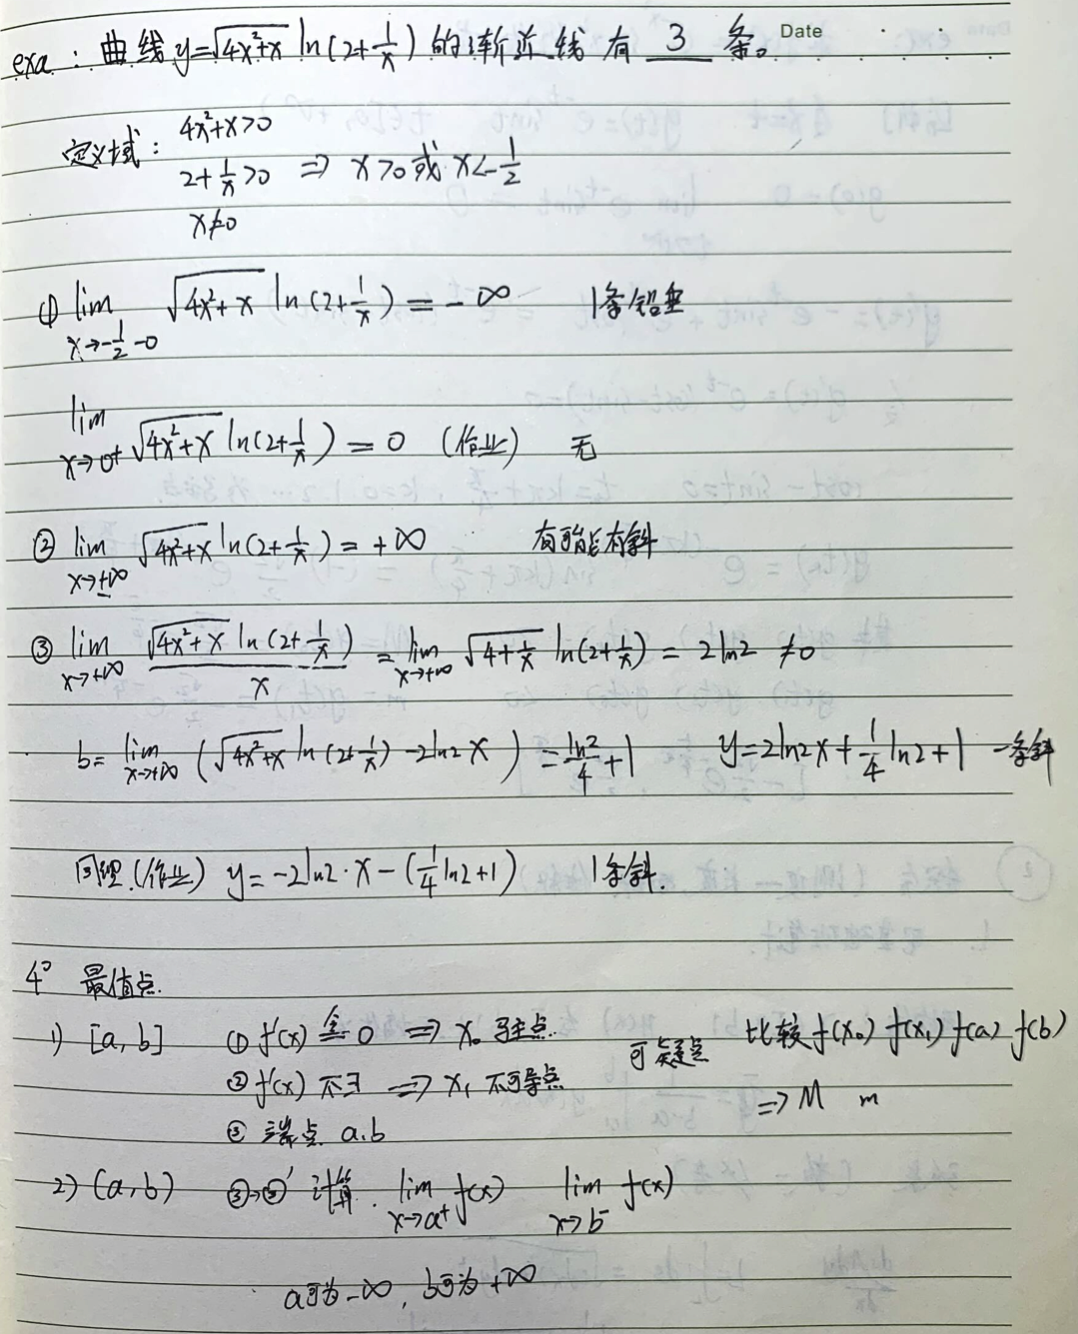 exa：曲线 y=√(4x²+x) ln(2+1/x) 的渐近线有 3 条。 Date
定义域： 4x²+x>0
2+1/x>0 ⇒ x>0 或 x<-1/2
x≠0
① lim x→-1/2-0 √(4x²+x) ln(2+1/x) = -∞ 1条铅垂
lim x→0⁺ √(4x²+x) ln(2+1/x) = 0 (作业) 无
② lim x→+∞ √(4x²+x) ln(2+1/x) = +∞ 有可能有斜
③ lim x→+∞ √(4x²+x) ln(2+1/x) / x = lim x→+∞ √(4+1/x) ln(2+1/x) = 2ln2 ≠0
b= lim x→+∞ (√(4x²+x) ln(2+1/x) -2ln2 x) = ln2/4 +1 y=2ln2x+1/4 ln2+1 一条斜
同理.(作业) y=-2ln2·x-(1/4 ln2+1) 1条斜.
4° 最值点.
1) [a, b] ① f'(x) 令= 0 ⇒ x₀ 驻点. 可疑点 比较 f(x₀) f(x₁) f(a) f(b)
② f'(x) 不∃ ⇒ x₁ 不可导点 ⇒ M m
③ 端点 a.b
2) (a, b) ③→③' 计算. lim x→a⁺ f(x) lim x→b⁻ f(x)
a可为-∞, b可为+∞